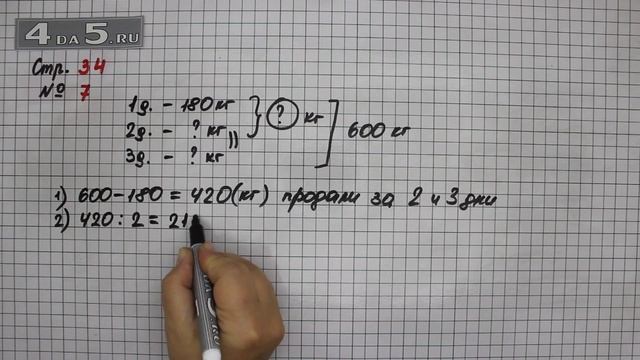 4DA5.RU
Стр. 34
№ 7
1д. – 180 кг
2д. – ? кг ? кг 600 кг
3д. – ? кг
1) 600 – 180 = 420 (кг) продали за 2 и 3 дни
2) 420 : 2 = 21